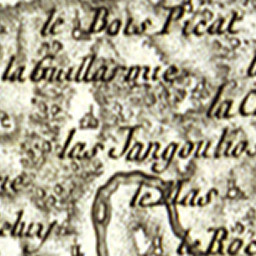 le Bois Picat
la Guillarmie
las Jangoulio
le Mas
le Roc